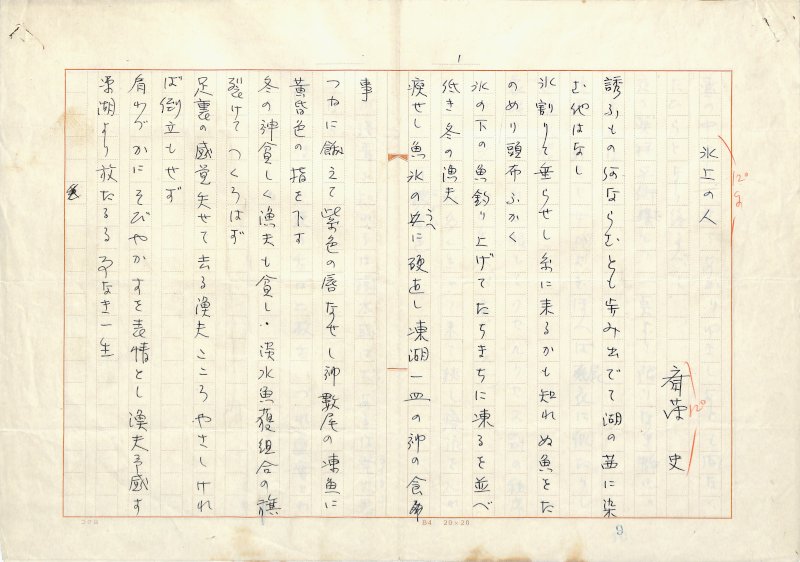 1
氷上の人
12ポ
斉藤 史
12ポ
誘ふもの何ならむとも歩み出でて湖の茜に染
む他はなし
氷割りて垂らせし糸に来るかも知れぬ魚をた
のめり頭布ふかく
氷の下の魚釣り上げてたちまちに凍るを並べ
低き冬の漁夫
痩せし魚氷の上に硬直し凍湖一皿の神の食
事
つねに飢えて紫色の唇なせし神数尾の凍魚に
黄昏色の指を下す
冬の神貧しく漁夫も貧し・淡水魚獲組合の旗
裂けて つくろはず
足裏の感覚失せて去る漁夫 こころ やさしけれ
ば倒立もせず
肩わづかにそびやかすを表情とし漁夫予感す
凍湖より放たるる なき一生
B4 20×20
9